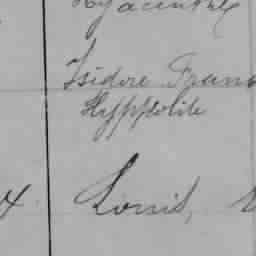 Hyacinthe
Isidore Frans
Hyppolite
x. Louis,